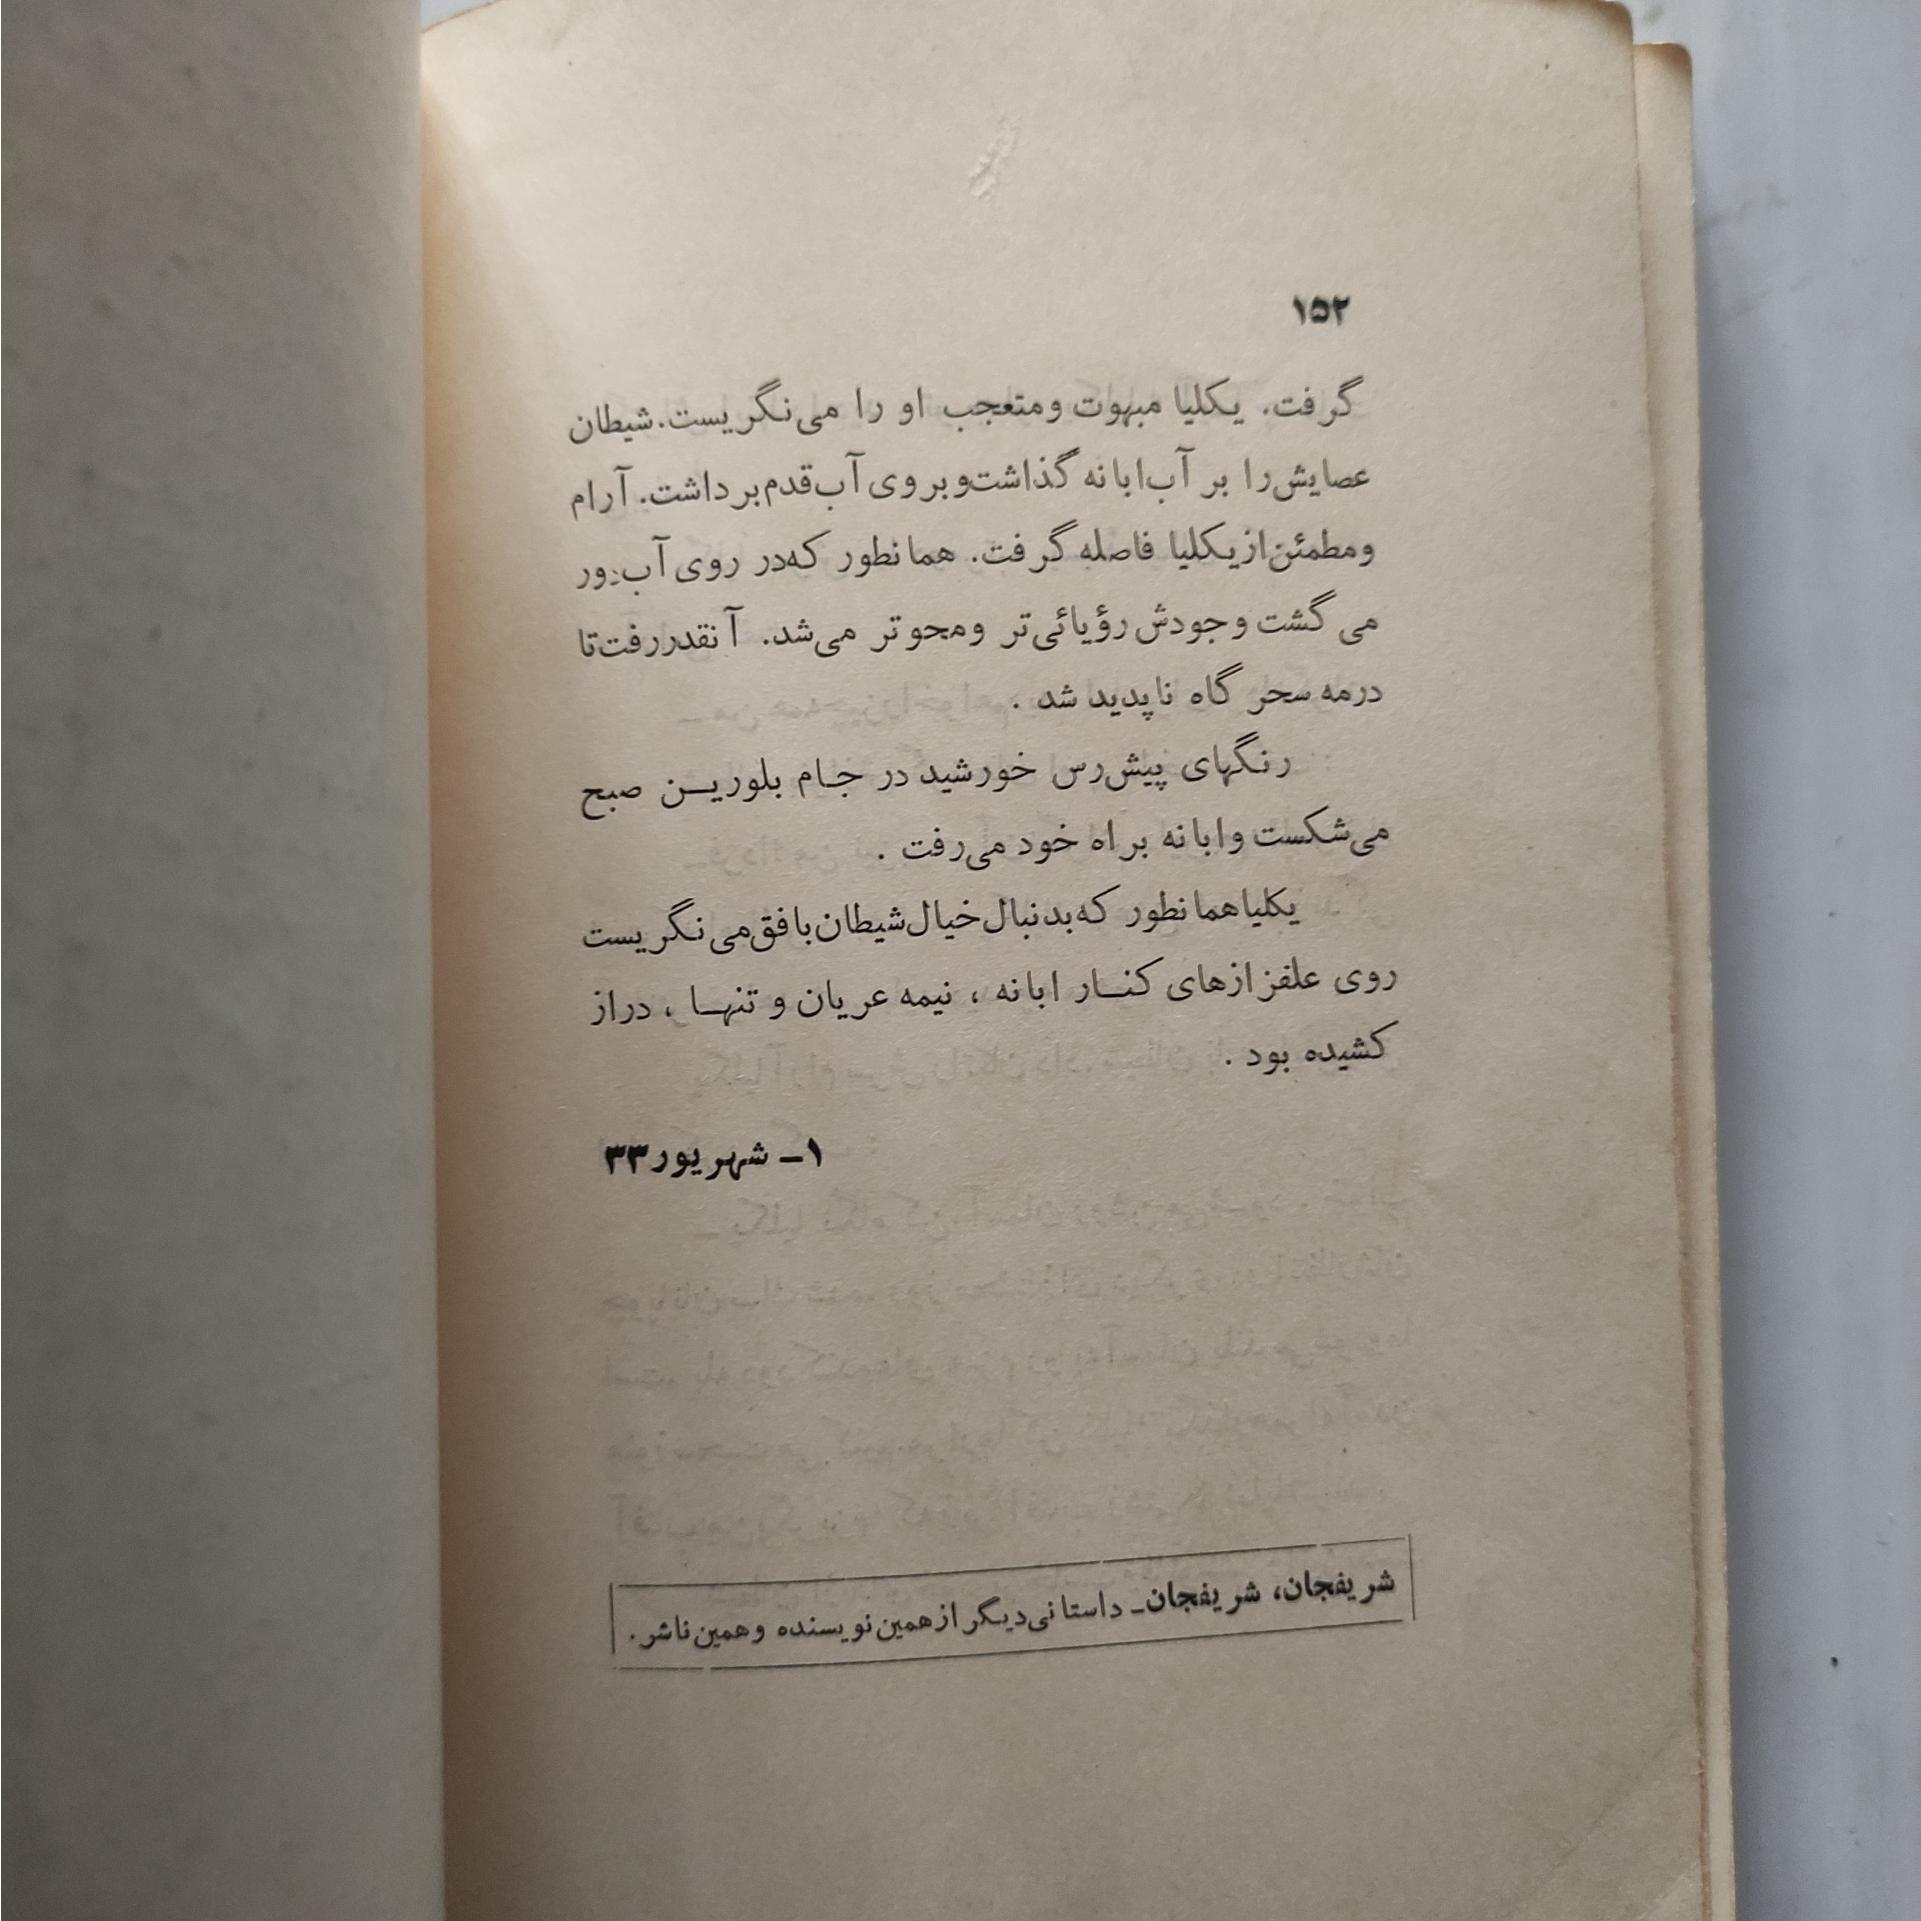 ۱۵۲
گرفت. یکلیا مبهوت ومتعجب او را می‌نگریست. شیطان
عصایش‌را بر آب‌ابانه گذاشت‌وبروی آب‌قدم‌برداشت. آرام
ومطمئن‌ازیکلیا فاصله گرفت. همانطور که‌در روی آب‌دور
می‌گشت وجودش رؤیائی‌تر ومحوتر می‌شد. آنقدررفت‌تا
درمه سحرگاه ناپدید شد .
رنگهای پیش‌رس خورشید در جام بلورین صبح
می‌شکست وابانه براه خود می‌رفت .
یکلیاهمانطور که‌بدنبال‌خیال‌شیطان‌بافق‌می‌نگریست
روی علفزارهای کنار ابانه ، نیمه عریان و تنها ، دراز
کشیده بود .
۱ـ شهریور۳۳
شریفجان، شریفجان‌ـ داستانی‌دیگر ازهمین‌نویسنده وهمین‌ناشر.